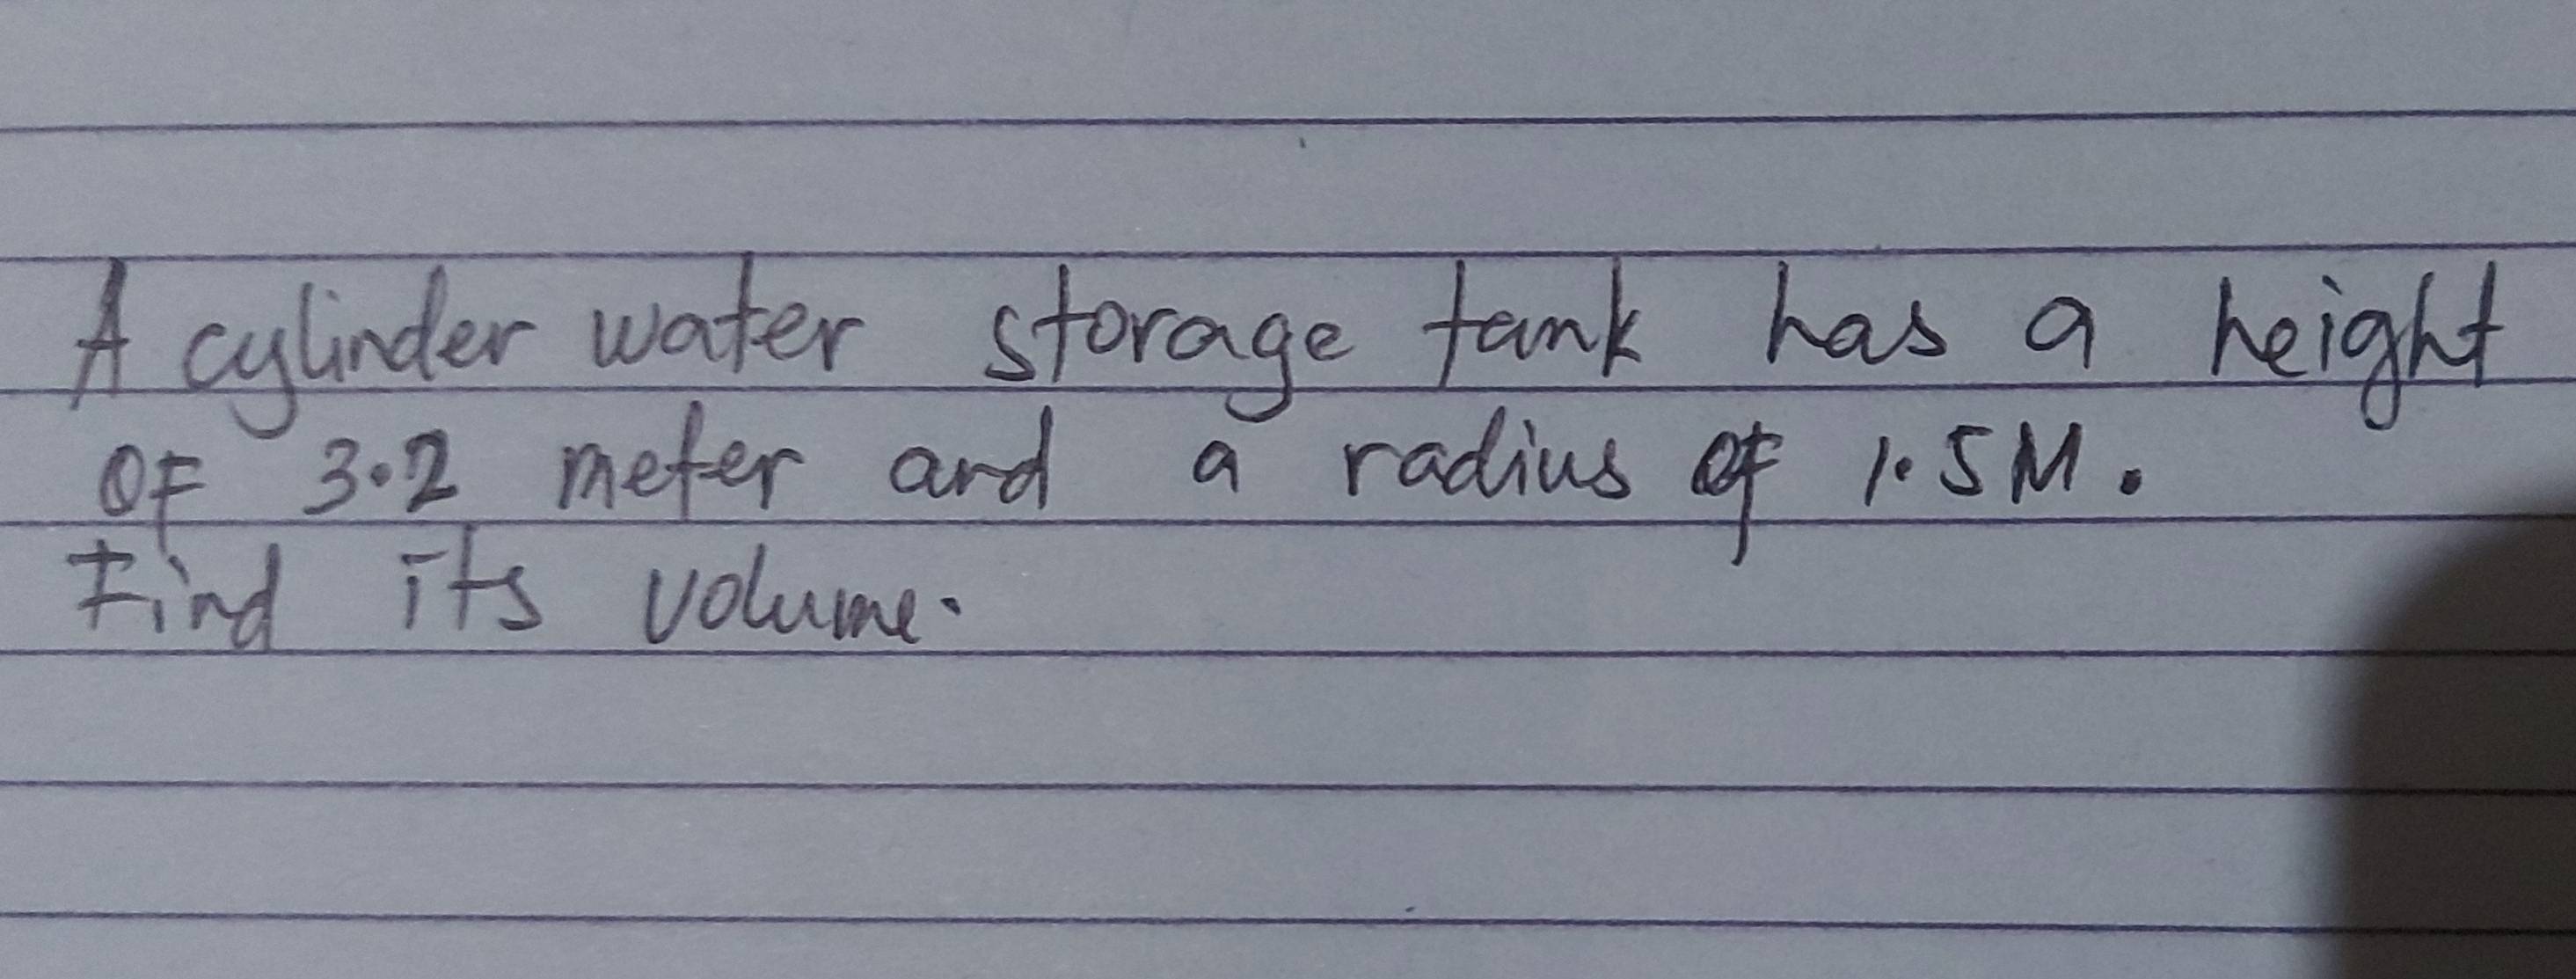 A cylinder water storage tank has a height
OF 3.2 meter and a radius of 1.5M.
Find its volume.